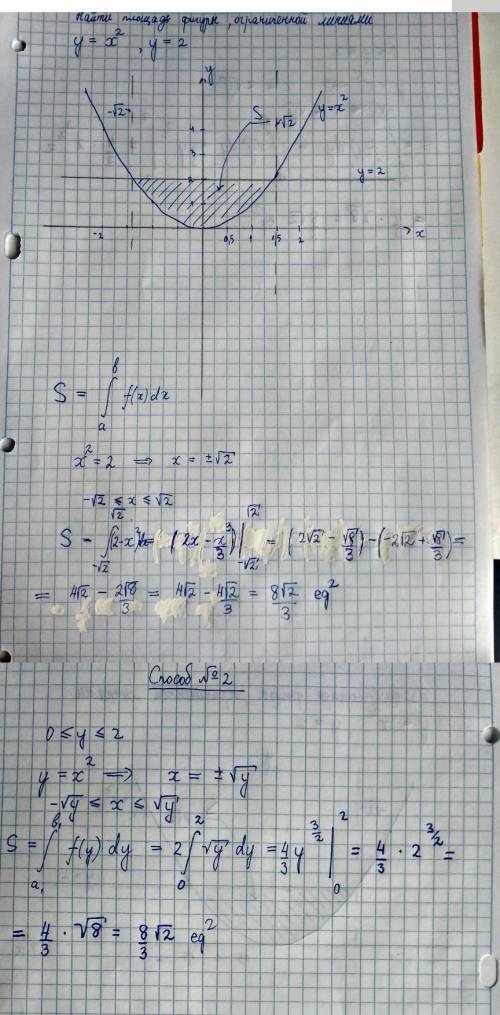 Найти площадь фигуры, ограниченной линиями
y = x², y = 2
y
-√2
S
√2
y=x²
4
3
2
1
y=2
-2
0,5
1
1,5
2
x
S = ∫ₐᵇ f(x)dx
x² = 2 ⟹ x = ±√2
-√2 ≤ x ≤ √2
S = ∫_{-√2}^{√2} (2-x²)dx = (2x - x³/3)|_{-√2}^{√2} = (2√2 - √8/3) - (-2√2 + √8/3) =
= 4√2 - 2√8/3 = 4√2 - 4√2/3 = 8√2/3 ед²
Способ №2
0 ≤ y ≤ 2
y = x² ⟹ x = ±√y
-√y ≤ x ≤ √y
S = ∫_{a₁}^{b₁} f(y) dy = 2∫₀² √y dy = 4/3 y^{3/2} |₀² = 4/3 · 2^{3/2} =
= 4/3 · √8 = 8/3 √2 ед²